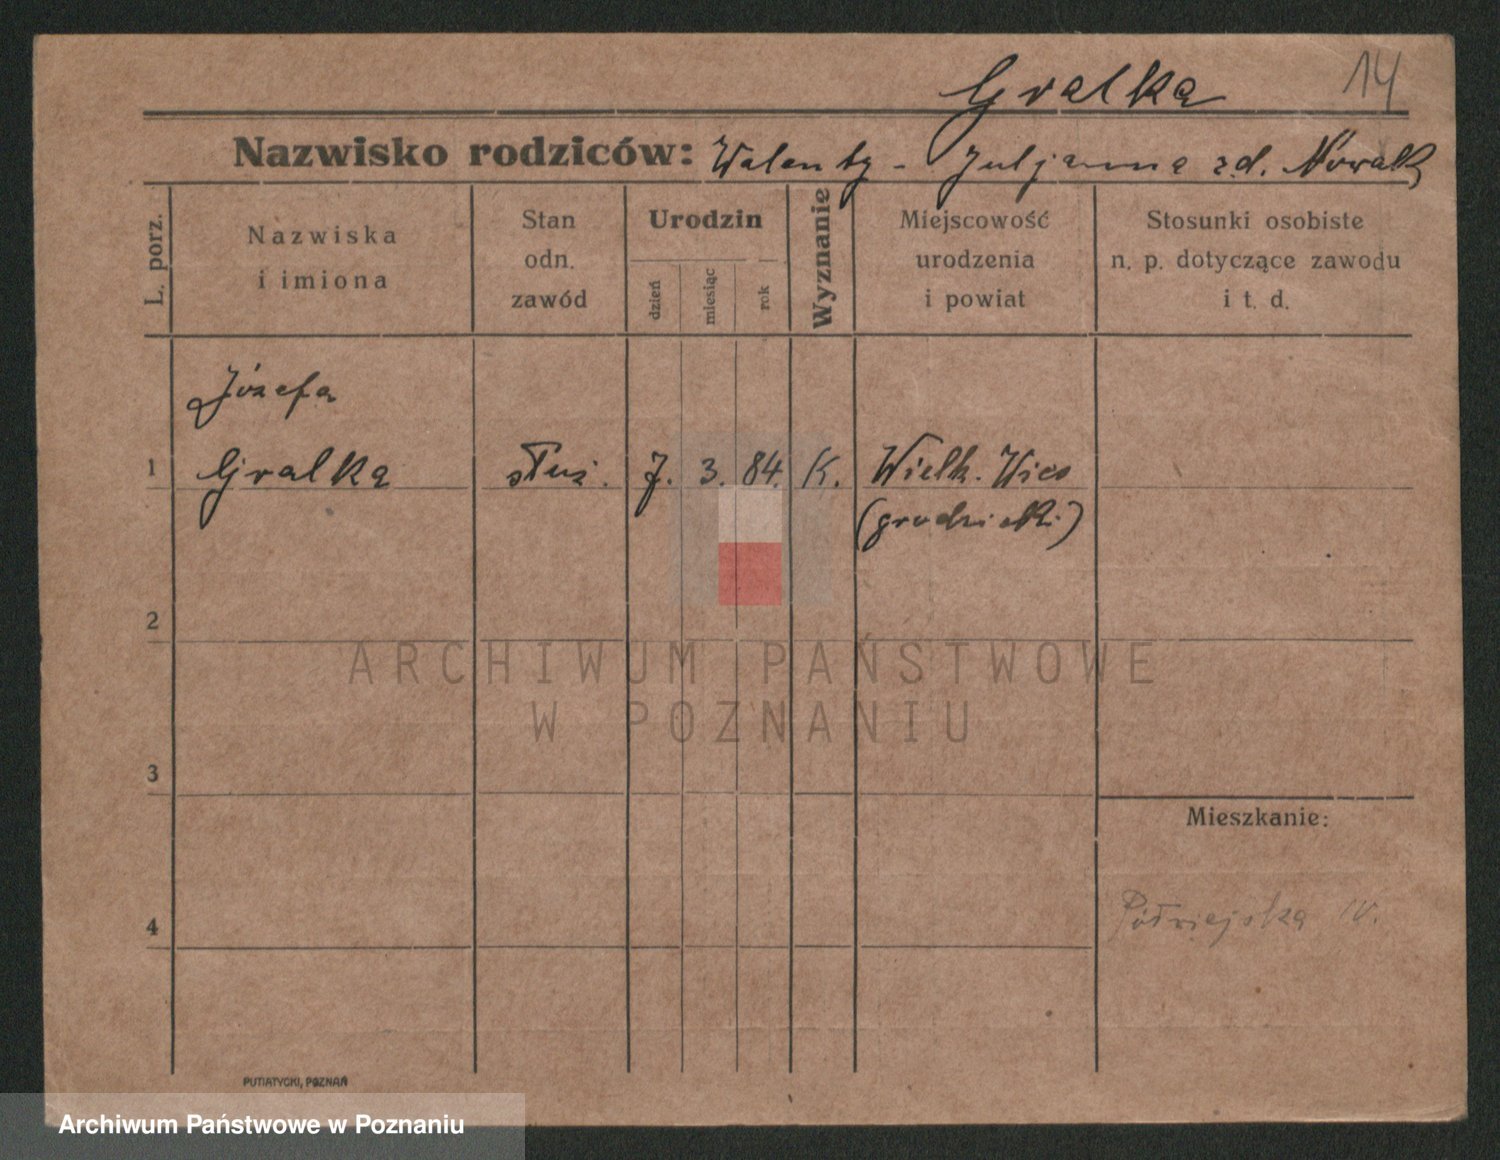 Gralka 14
Nazwisko rodziców: Walenty - Juljanna zd. Nowak
L. porz.
Nazwiska
i imiona
Stan
odn.
zawód
Urodzin
dzień
miesiąc
rok
Wyznanie
Miejscowość
urodzenia
i powiat
Stosunki osobiste
n. p. dotyczące zawodu
i t. d.
Józefa
1 Gralka służ. 7. 3. 84. K. Wielk. Wieś
(grodziski)
2
ARCHIWUM PAŃSTWOWE
W POZNANIU
3
Mieszkanie:
4 Półwiejska
PUTIATYCKI, POZNAŃ
Archiwum Państwowe w Poznaniu